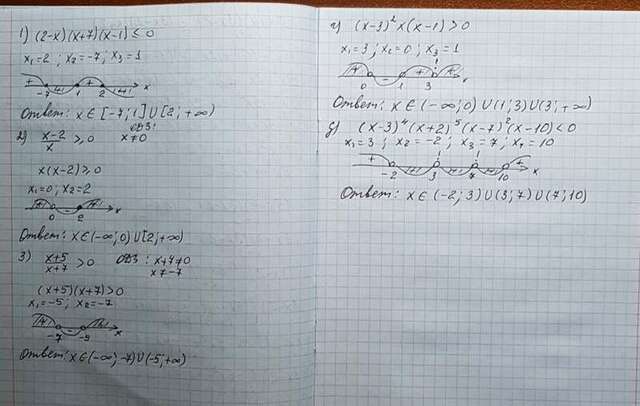 1) (2-x)(x+7)(x-1) ≤ 0
x₁=2 ; x₂=-7 ; x₃=1
+ - + -
-7 1 2 x
Ответ: x ∈ [-7; 1] ∪ [2; +∞)
2) x-2/x ≥ 0 ОДЗ: x≠0
x(x-2) ≥ 0
x₁=0 ; x₂=2
+ - +
0 2 x
Ответ: x ∈ (-∞; 0) ∪ [2; +∞)
3) x+5/x+7 > 0 ОДЗ: x+7≠0
x≠-7
(x+5)(x+7)>0
x₁=-5 ; x₂=-7
+ - +
-7 -5 x
Ответ: x ∈ (-∞; -7) ∪ (-5; +∞)
4) (x-3)² x(x-1) > 0
x₁=3 ; x₂=0 ; x₃=1
+ - + +
0 1 3 x
Ответ: x ∈ (-∞; 0) ∪ (1; 3) ∪ (3; +∞)
(x-3)⁴ (x+2)⁵ (x-7)² (x-10) < 0
x₁=3 ; x₂=-2 ; x₃=7 ; x₄=10
+ - - - +
-2 3 7 10 x
Ответ: x ∈ (-2; 3) ∪ (3; 7) ∪ (7; 10)